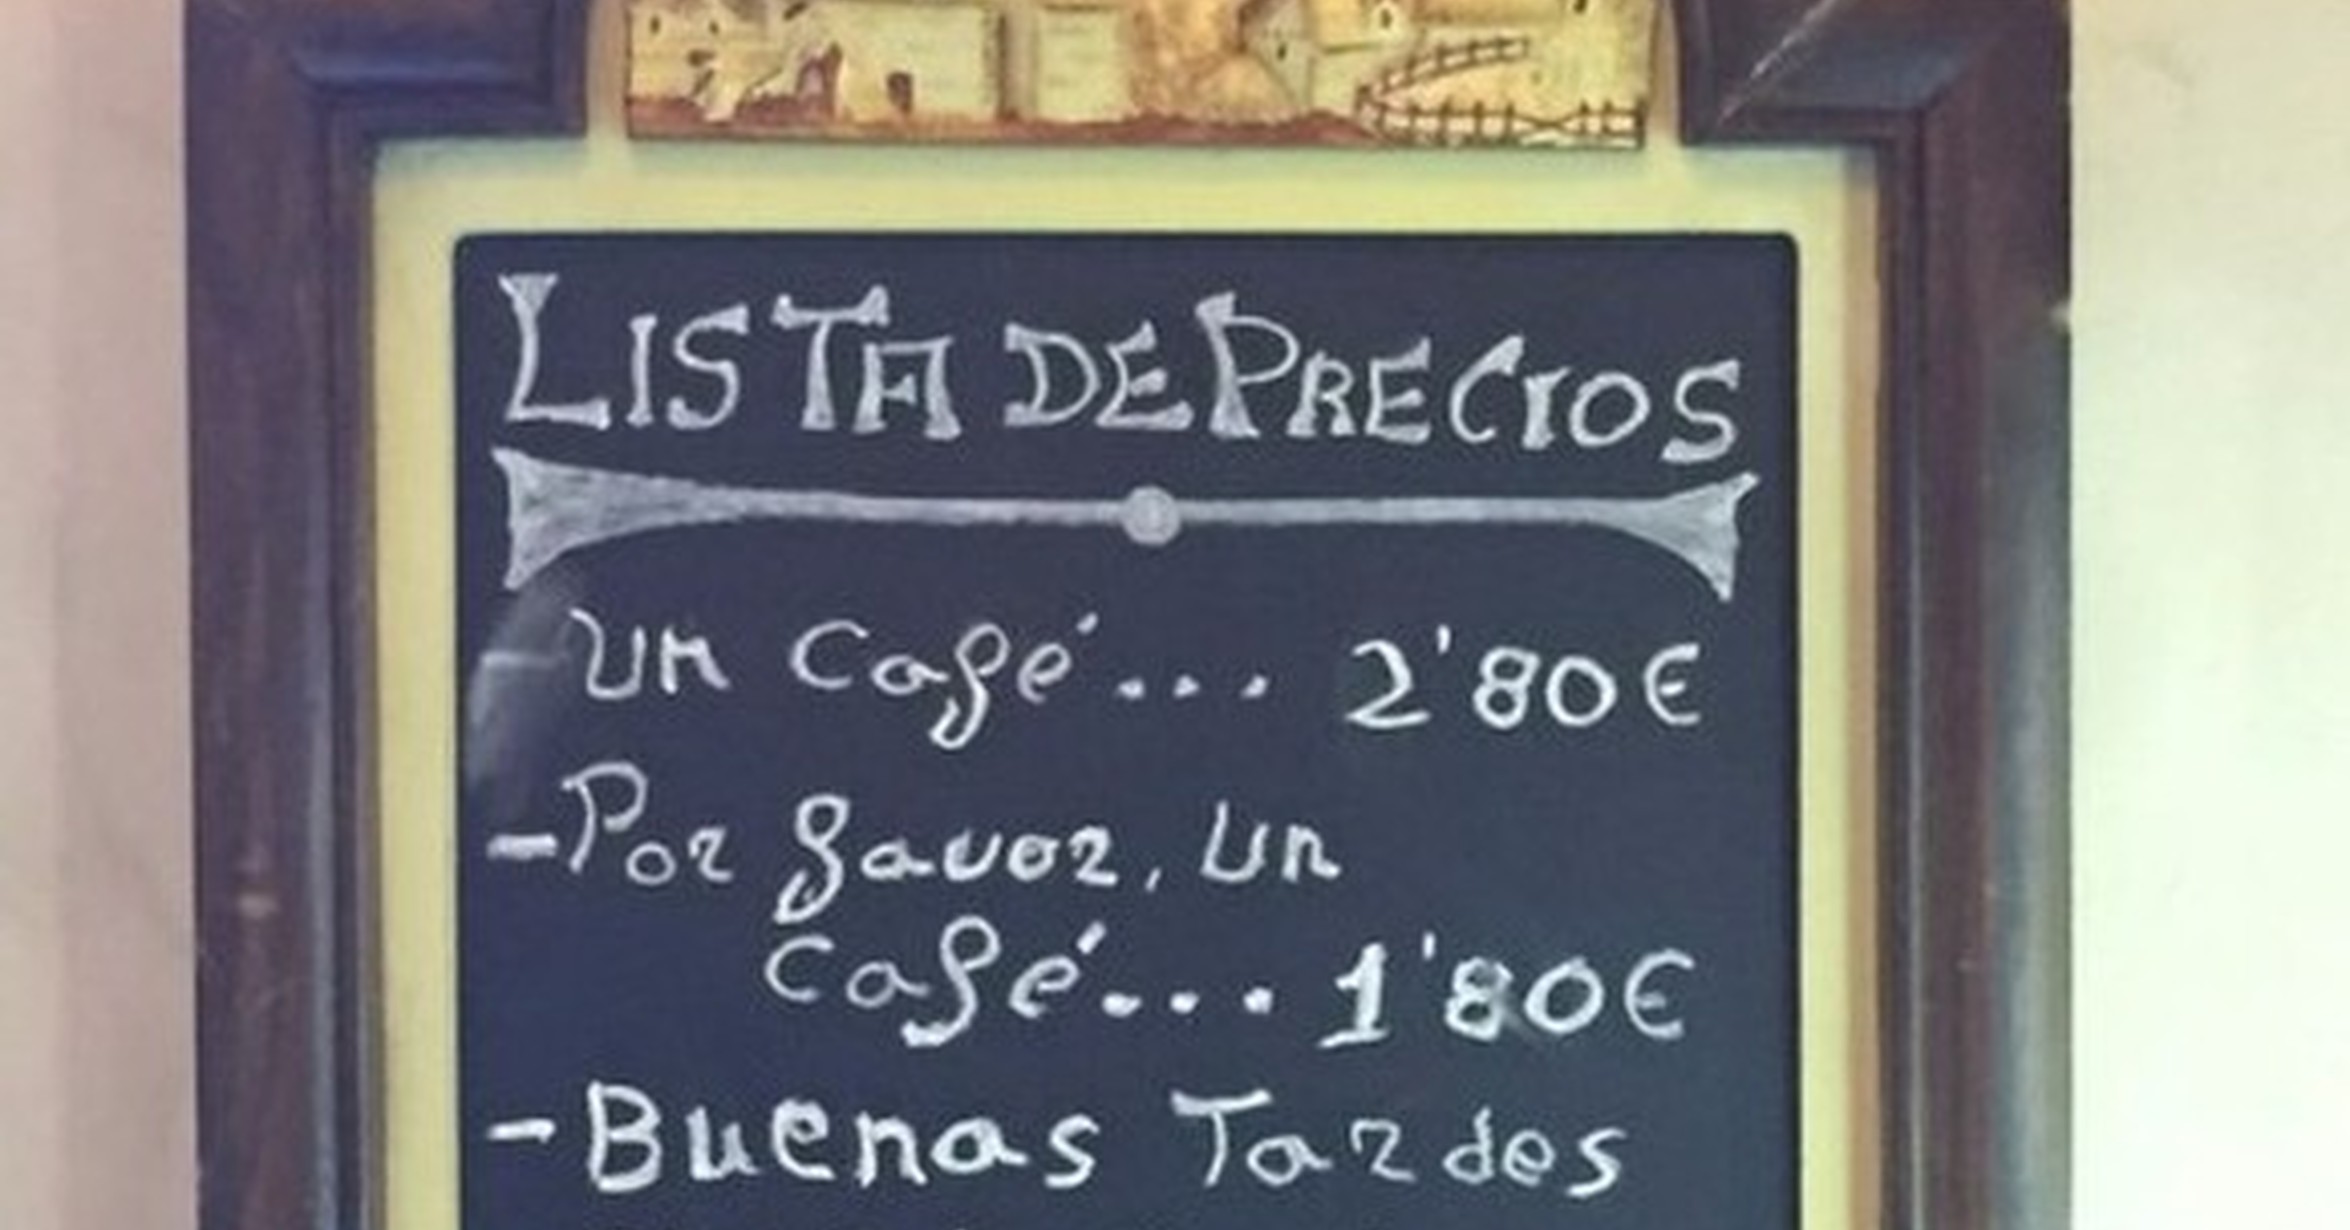 LISTA DE PRECIOS
Un Café... 2'80€
-Por favor, un
café... 1'80€
-Buenas Tardes